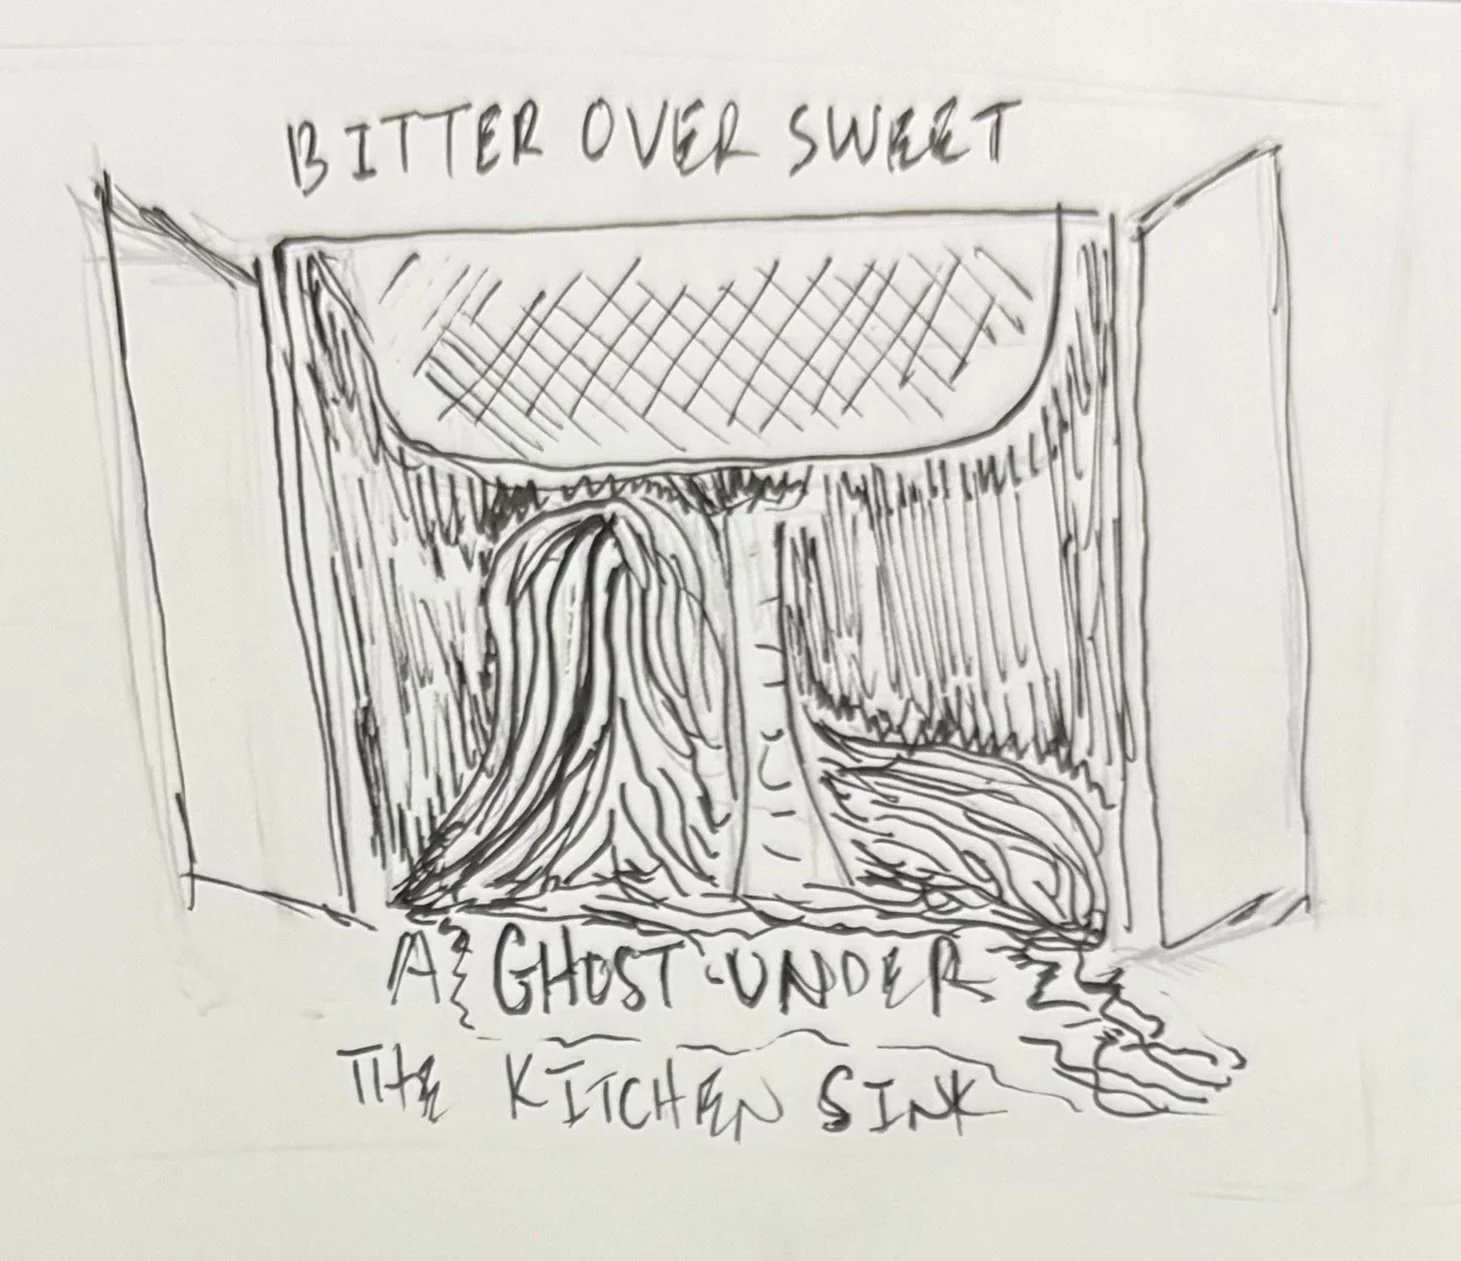 BITTER OVER SWEET
A GHOST UNDER
THE KITCHEN SINK